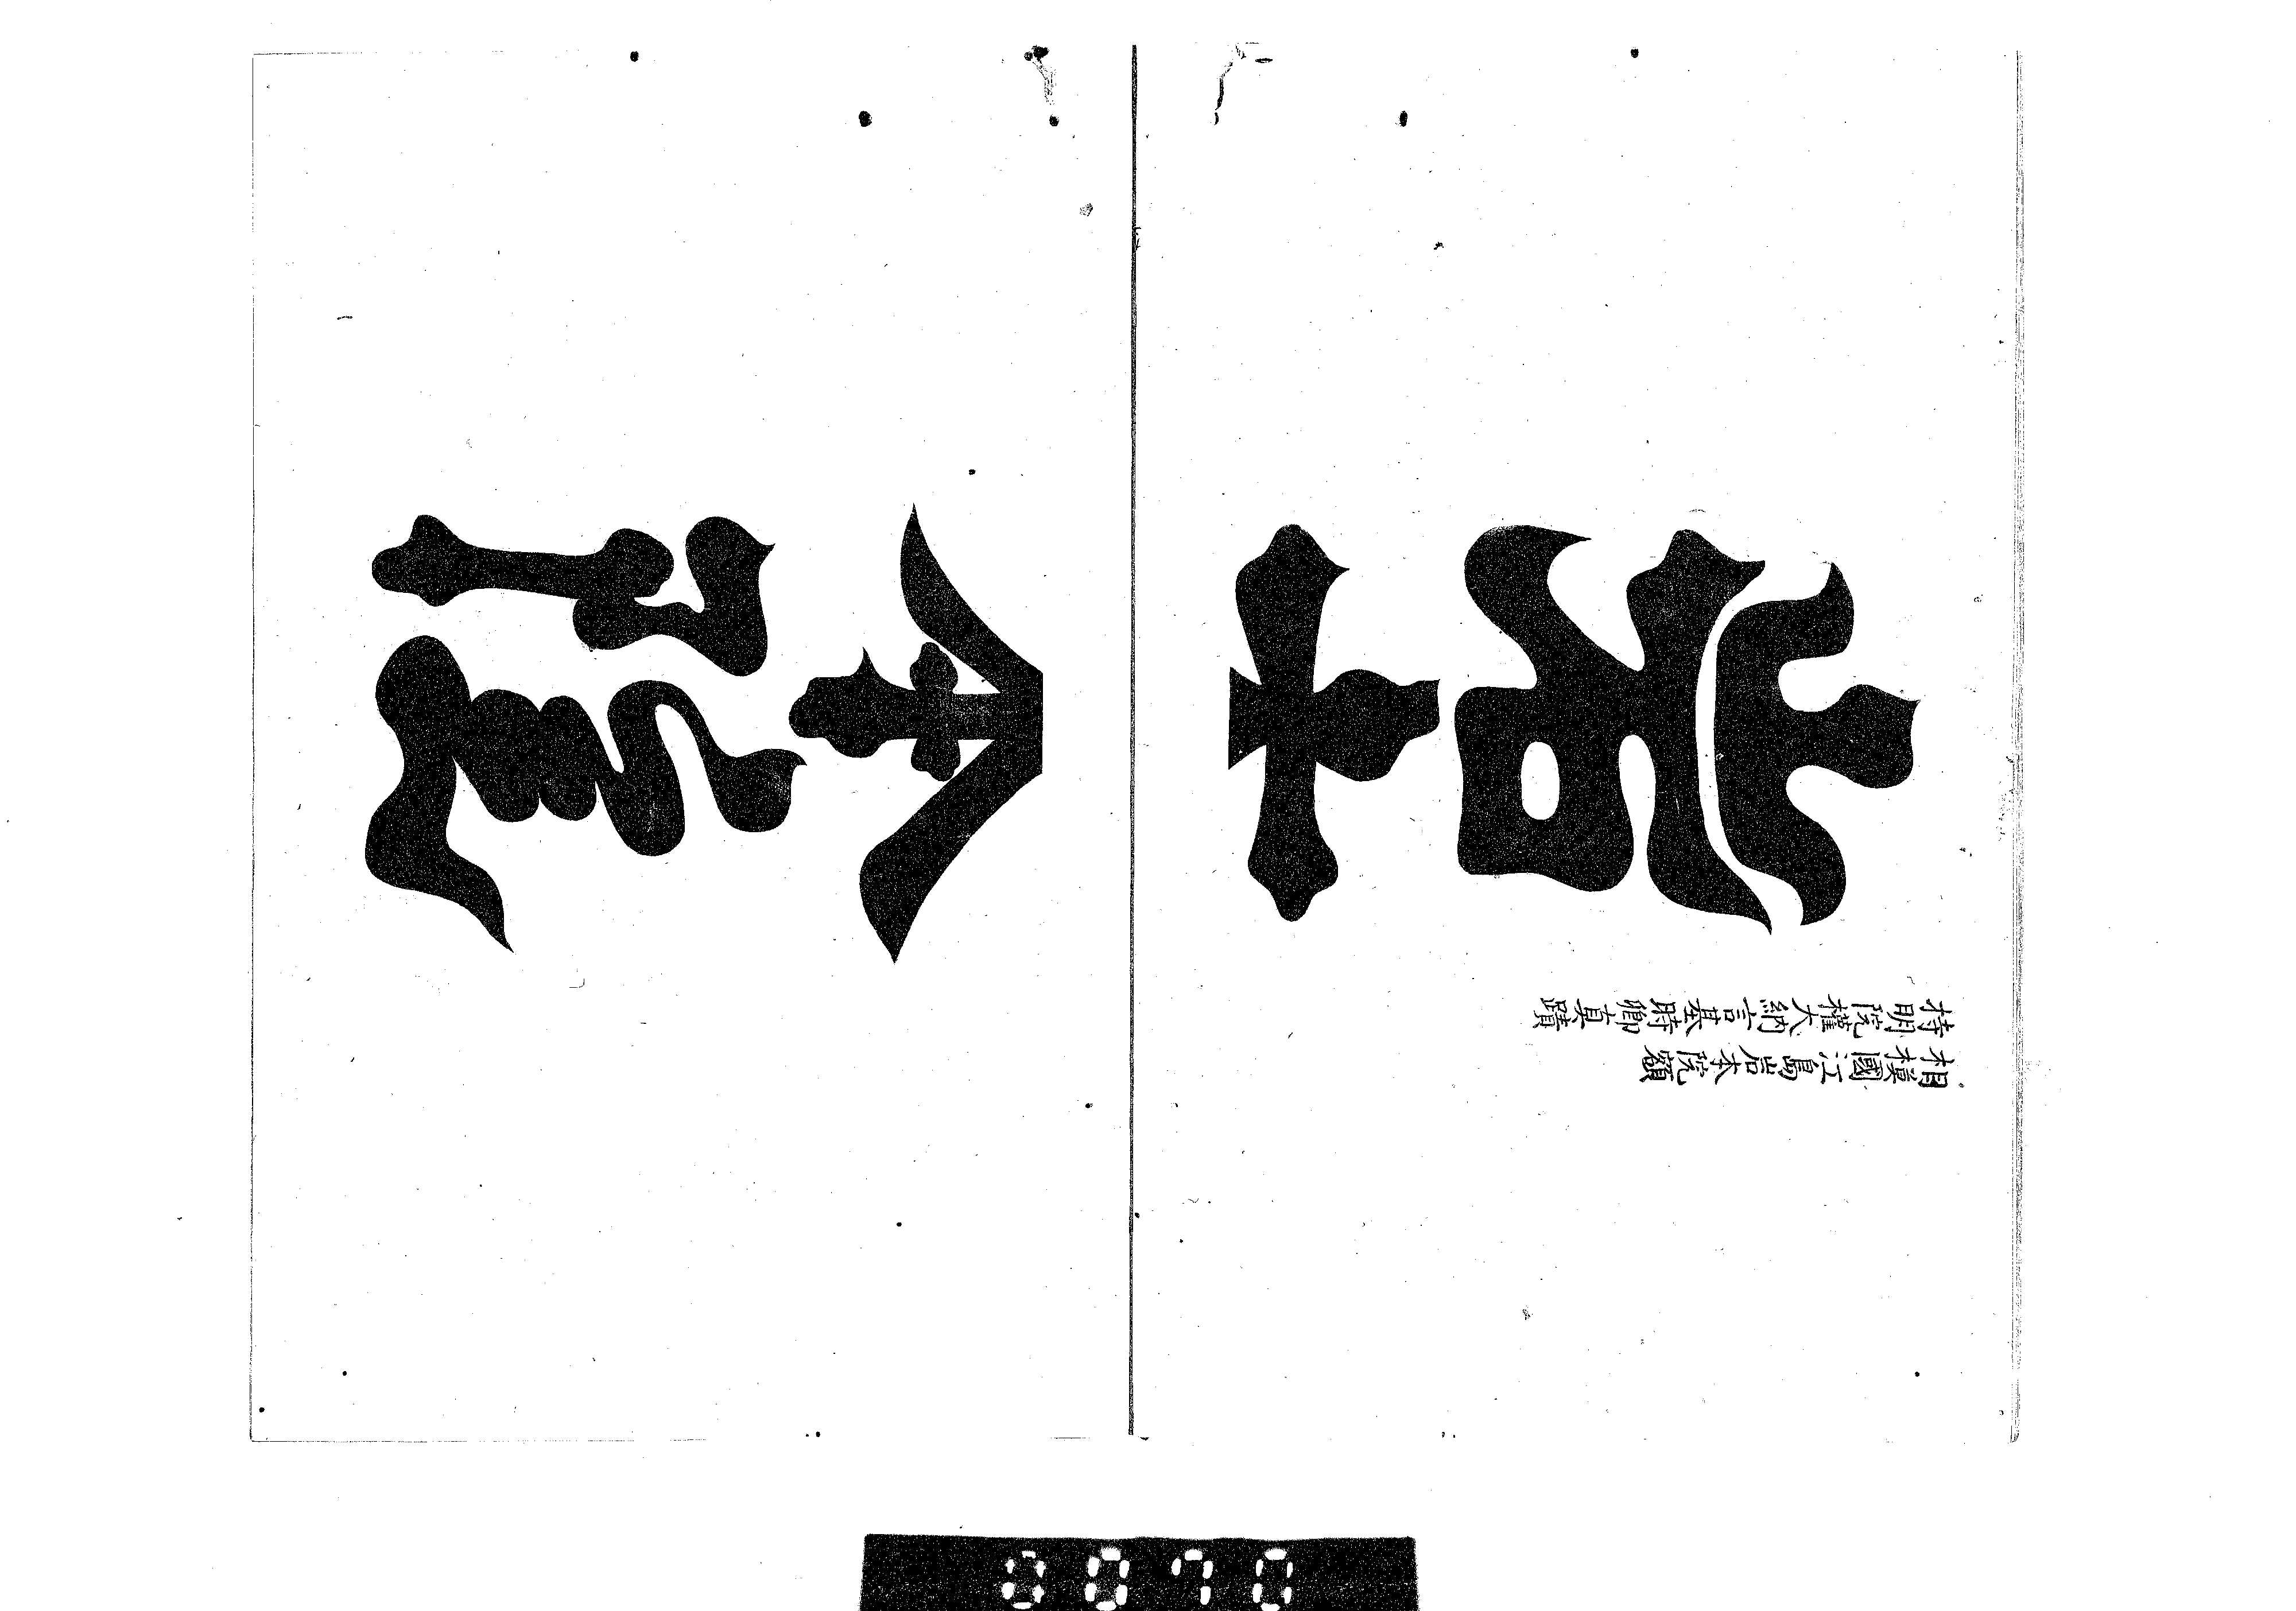 岩本院
相模國江島岩本院額
持明院權大納言基時卿真蹟
0070